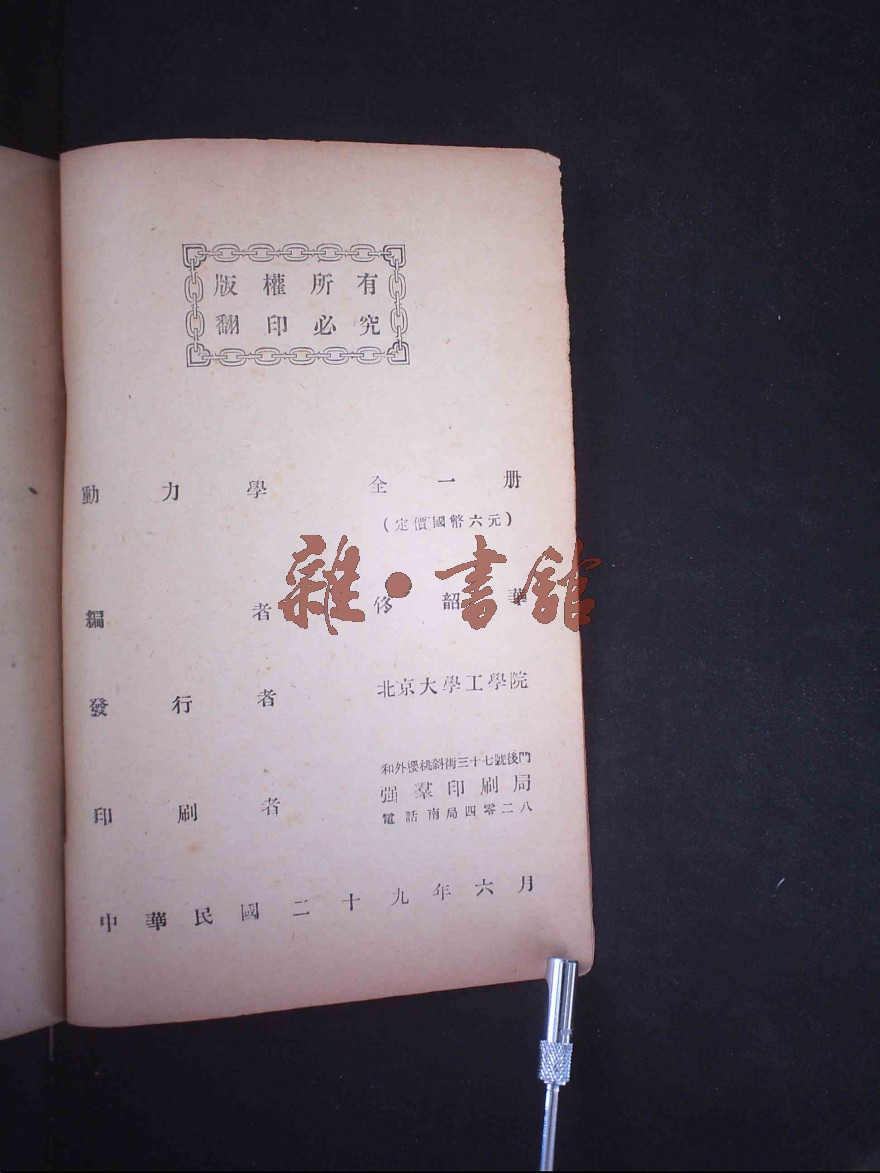 版權所有
翻印必究
動力學 全一册
(定價國幣六元)
編者 佟韶華
發行者 北京大學工學院
和外櫻桃斜街三十七號後門
印刷者 强羣印刷局
電話南局四零二八
中華民國二十九年六月
雜·書館